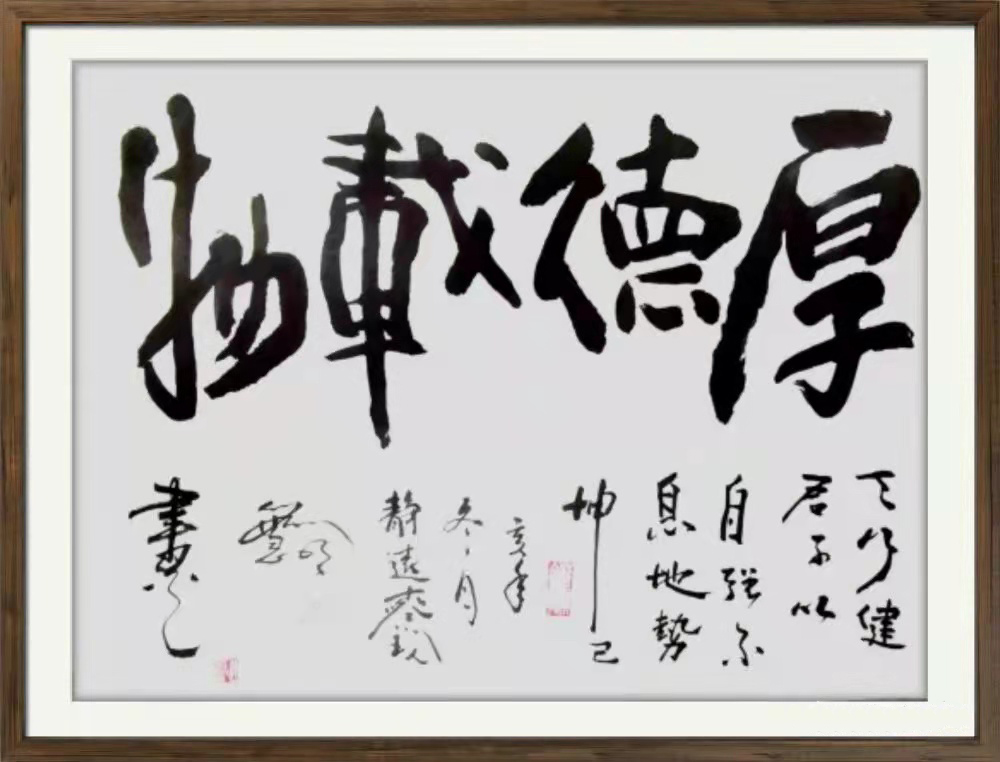 厚德載物
天行健
君子以
自强不
息地勢
坤己
亥年
冬月
靜遠
書